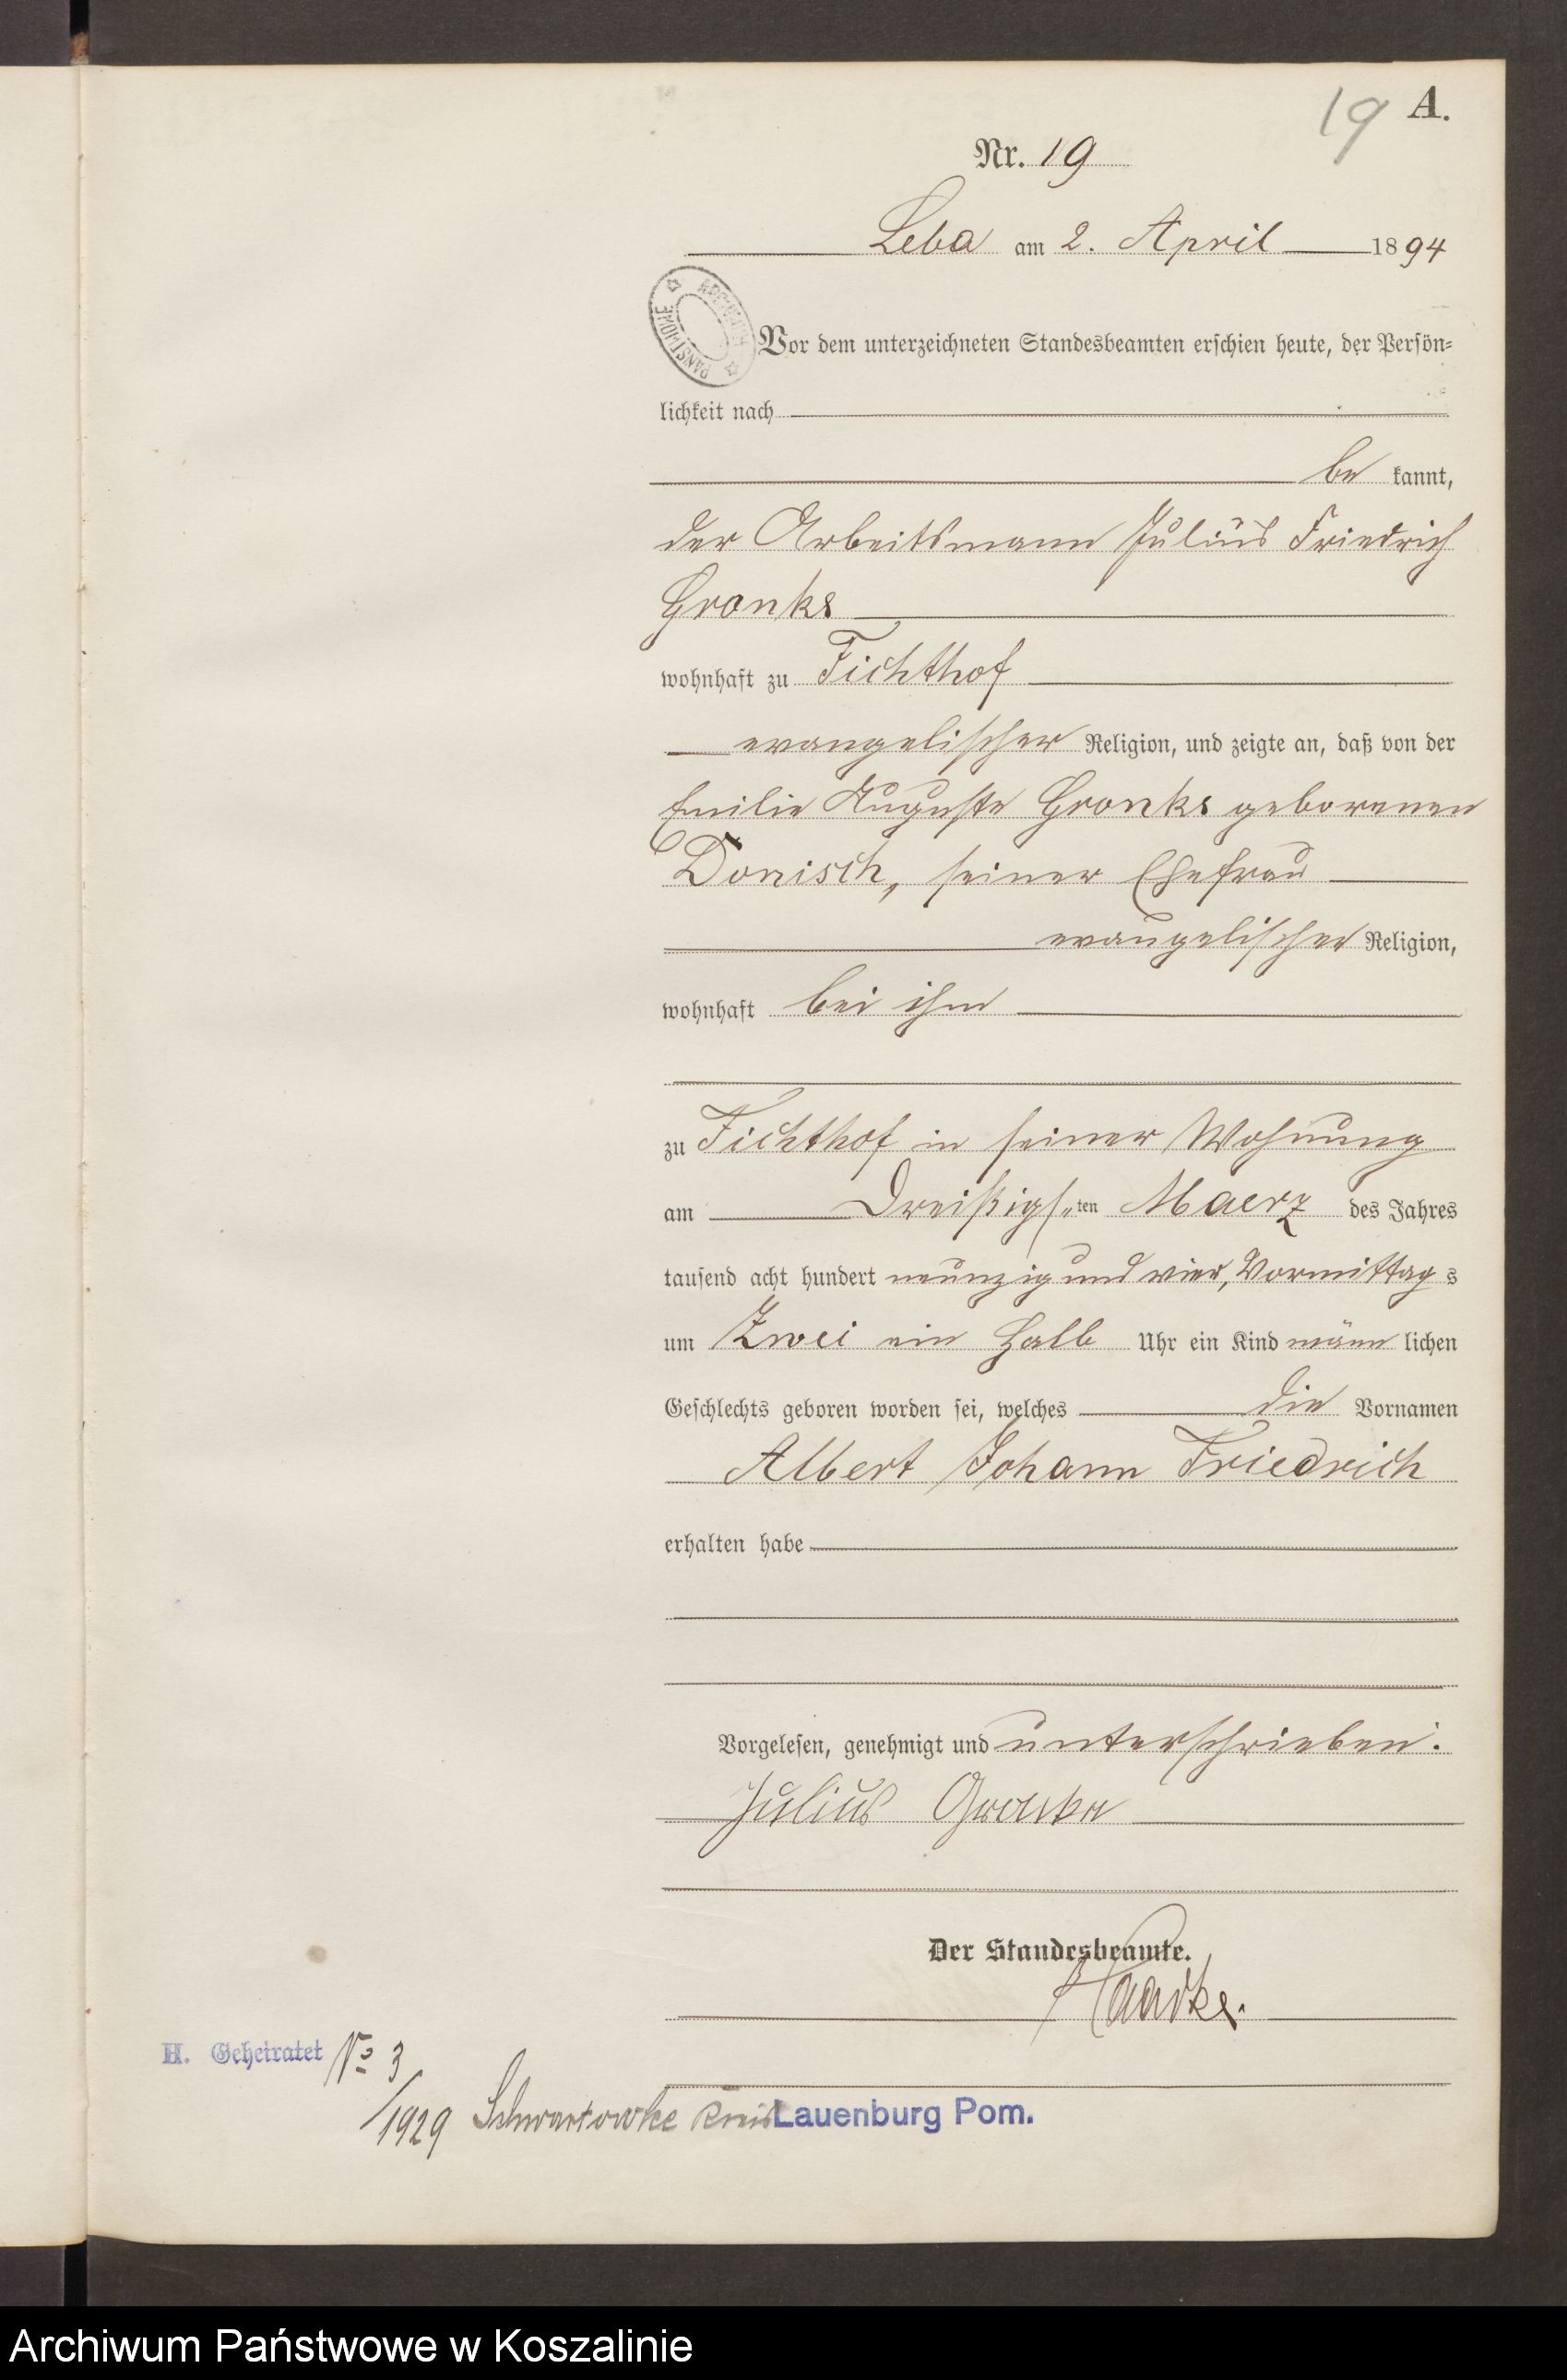 19 A.
Nr. 19
Leba am 2. April 1894
Vor dem unterzeichneten Standesbeamten erschien heute, der Persön=
lichkeit nach
be kannt,
der Arbeitsmann Julius Friedrich
Gronke
wohnhaft zu Fichthof
evangelischer Religion, und zeigte an, daß von der
Emilie Auguste Gronke geborenen
Donisch, seiner Ehefrau
evangelischer Religion,
wohnhaft bei ihm
zu Fichthof in seiner Wohnung
am Dreißigsten Maerz des Jahres
tausend acht hundert neunzig und vier, Vormittag s
um Zwei ein halb Uhr ein Kind männ lichen
Geschlechts geboren worden sei, welches die Vornamen
Albert Johann Friedrich
erhalten habe
Vorgelesen, genehmigt und unterschrieben.
Julius Gronke
Der Standesbeamte.
H. Geheiratet No 3
/1929 Schwartowke Kreis Lauenburg Pom.
Archiwum Państwowe w Koszalinie